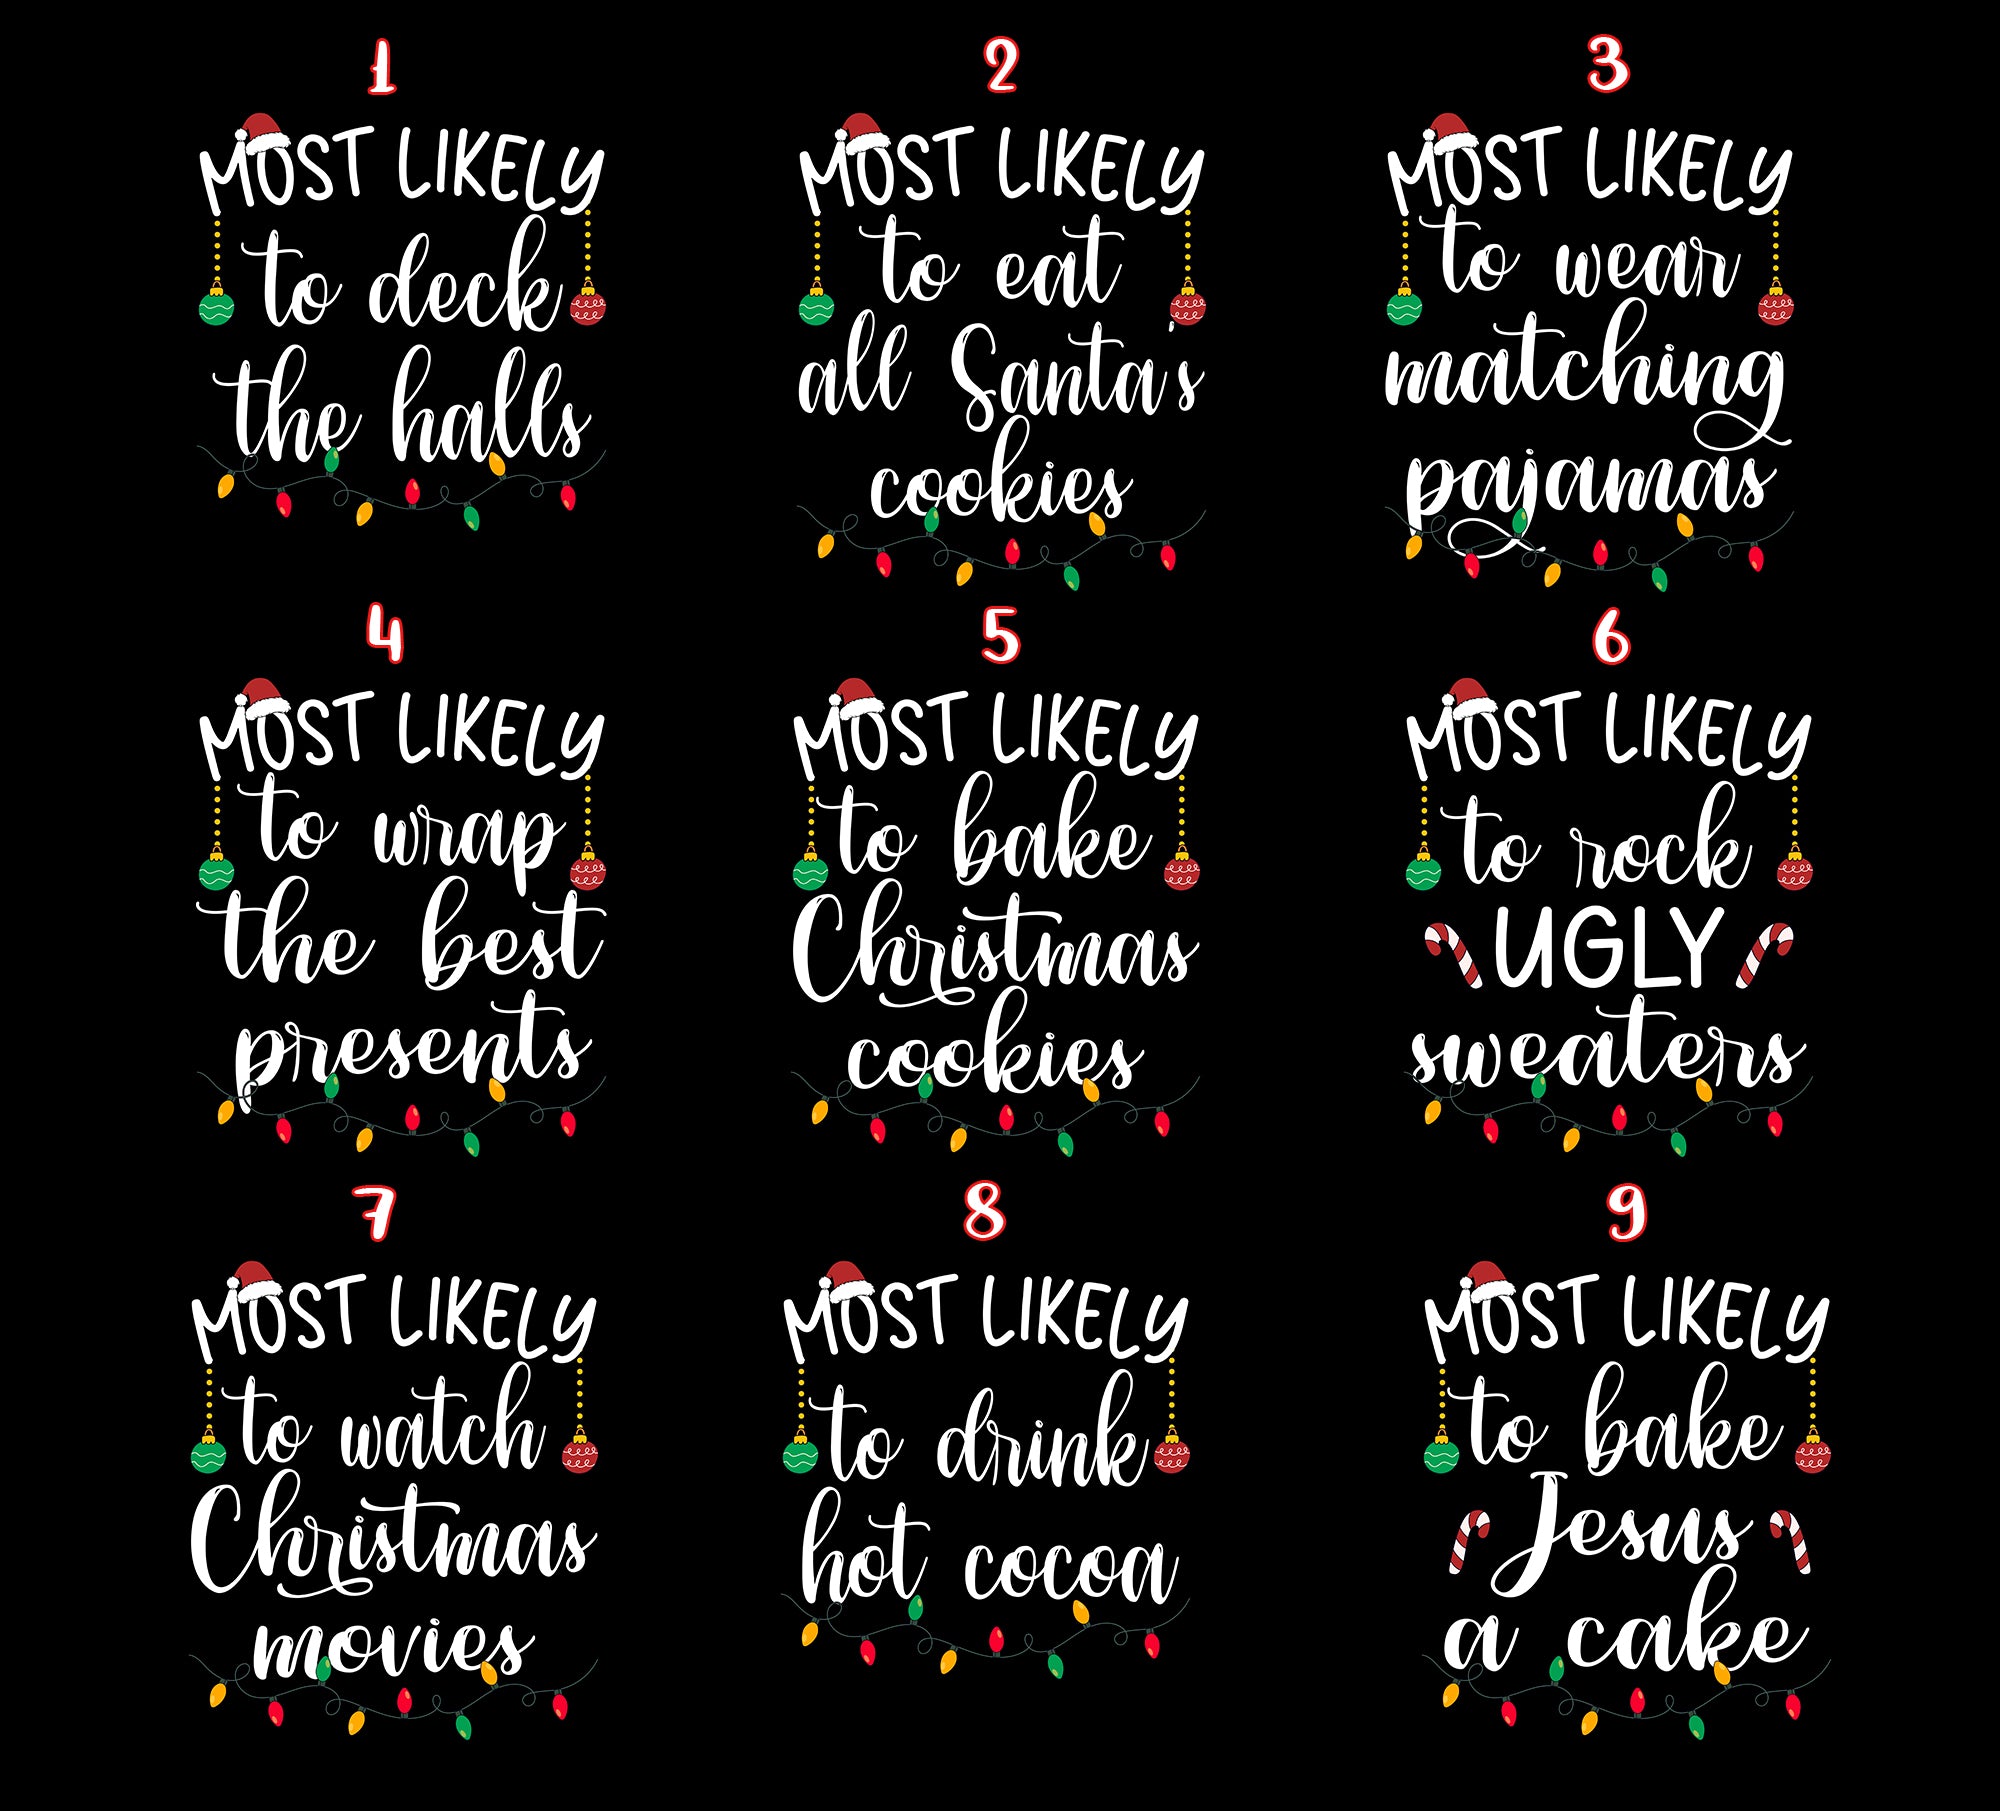 1
MOST LIKELY
to deck
the halls
2
MOST LIKELY
to eat
all Santa's
cookies
3
MOST LIKELY
to wear
matching
pajamas
4
MOST LIKELY
to wrap
the best
presents
5
MOST LIKELY
to bake
Christmas
cookies
6
MOST LIKELY
to rock
UGLY
sweaters
7
MOST LIKELY
to watch
Christmas
movies
8
MOST LIKELY
to drink
hot cocoa
9
MOST LIKELY
to bake
Jesus
a cake